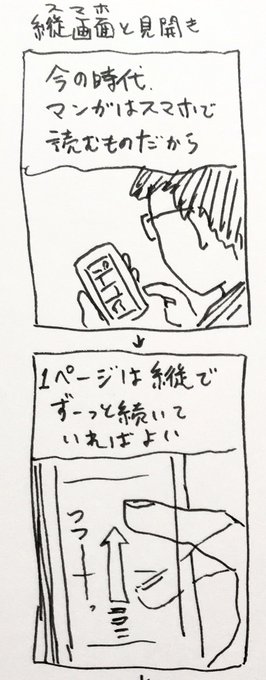 スマホ
縦画面と見開き
今の時代、
マンガはスマホで
読むものだから
1ページは縦で
ずーっと続いて
いればよい
つつーーっ